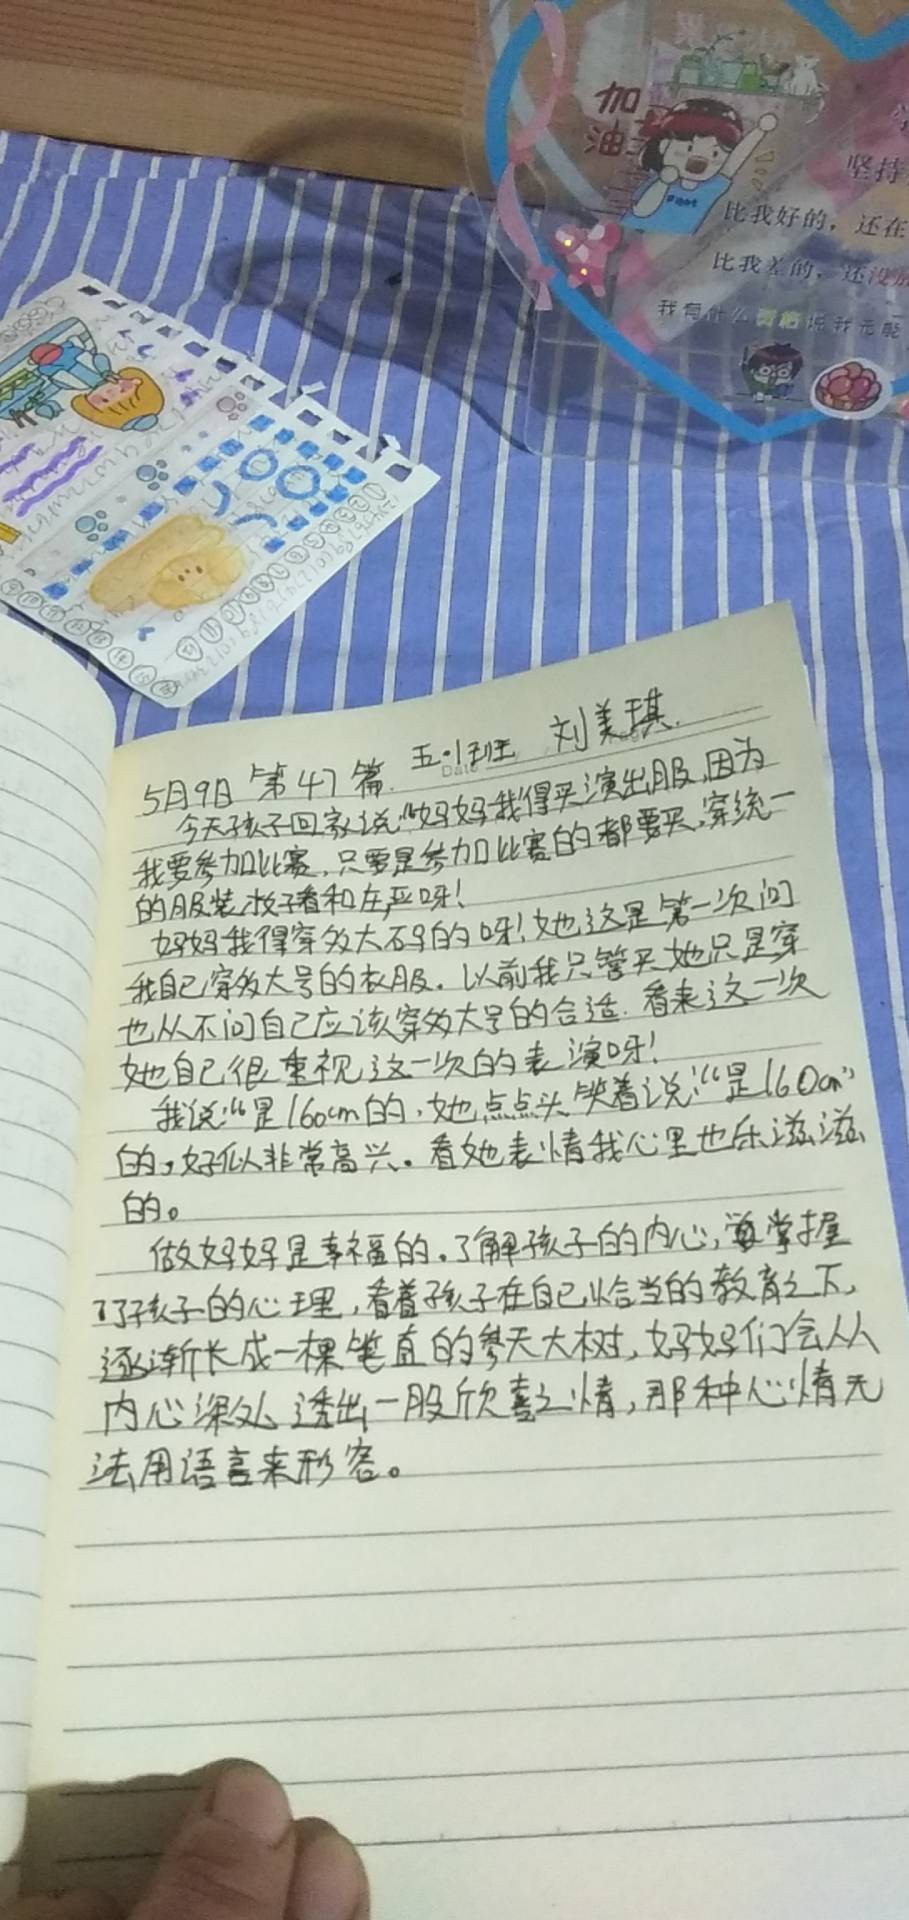 加油
坚持
比我好的，还在
比我差的，还没放
我有什么资格说我无能
5月9日 第47篇 五·1班 刘美琪
今天孩子回家说:“妈妈我得买演出服,因为
我要参加比赛,只要是参加比赛的都要买,穿统一
的服装,好看和庄严呀!
妈妈我得穿多大号的呀!她这是第一次问
我自己穿多大号的衣服.以前我只管买她只是穿
也从不问自己应该穿多大号的合适.看来这一次
她自己很重视这一次的表演呀!
我说:“是160cm的,她点点头笑着说:“是160cm”
的,好似非常高兴。看她表情我心里也乐滋滋
的。
做妈妈是幸福的。了解孩子的内心,掌握
了孩子的心理,看着孩子在自己恰当的教育之下,
逐渐长成一棵笔直的参天大树,妈妈们会从
内心深处透出一股欣喜之情,那种心情无
法用语言来形容。